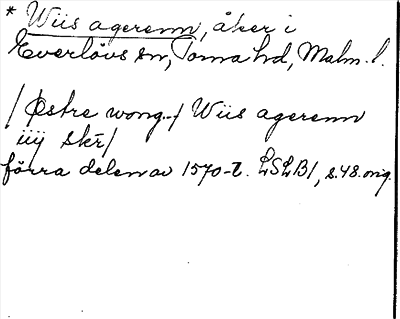 * Wiis agerenn, åker i
Everlövs sn, Torna hd, Malm. l.
/Østre wong../ Wiis agerenn
iiij skr/
förra delen av 1570-t. LSLB1, s.48.orig.